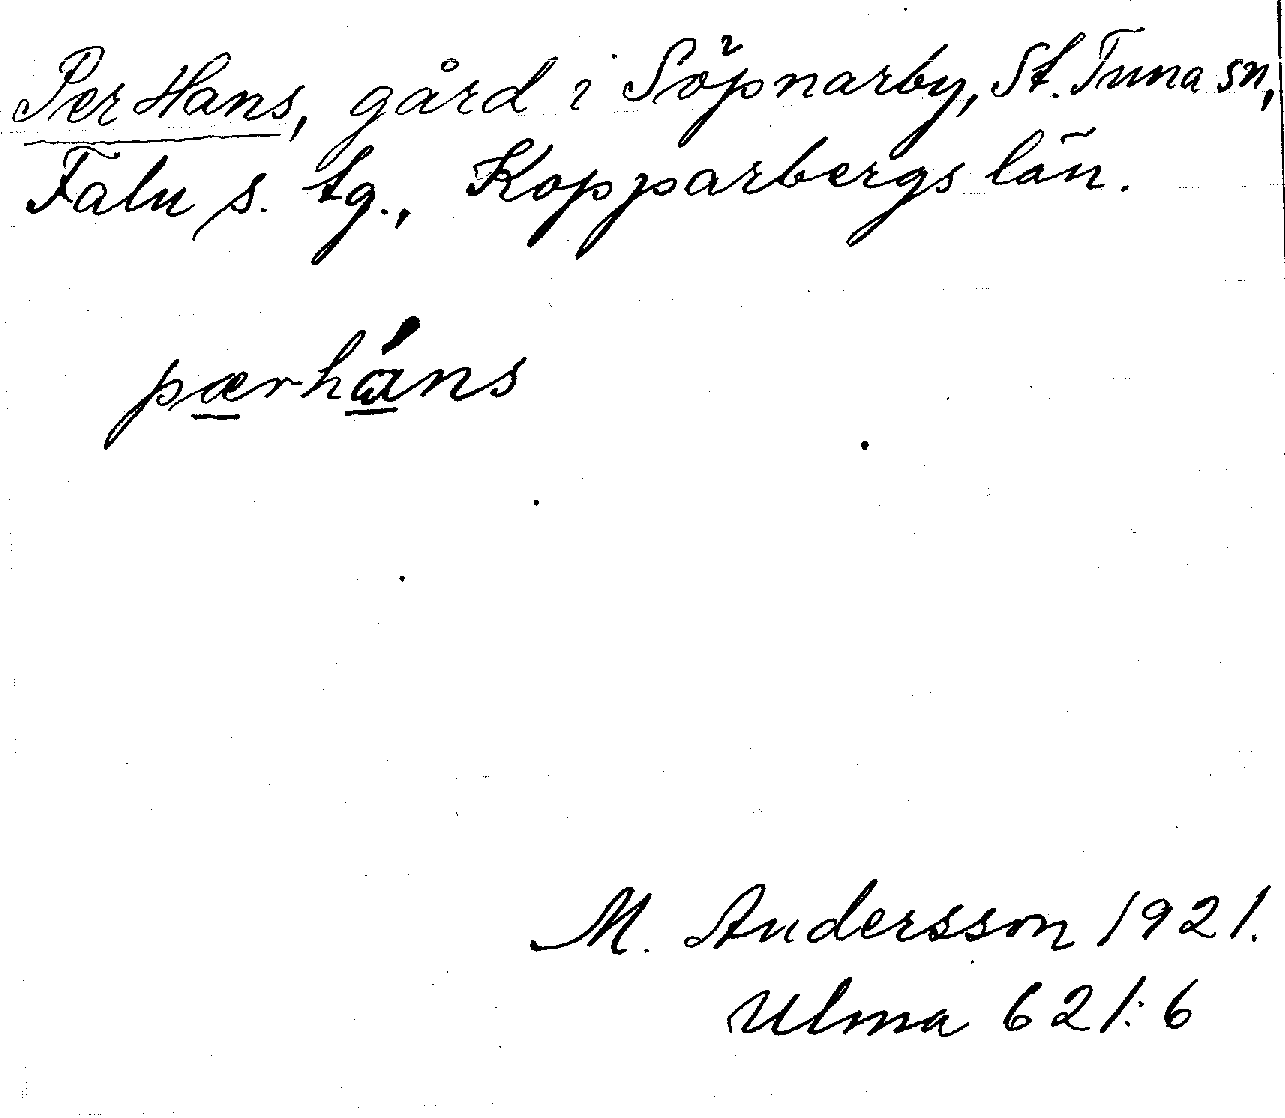 Per Hans, gård i Söpnarby, St. Tuna sn,
Falu s. tg., Kopparbergs län.
pærháns
M. Andersson 1921.
Ulma 621:6